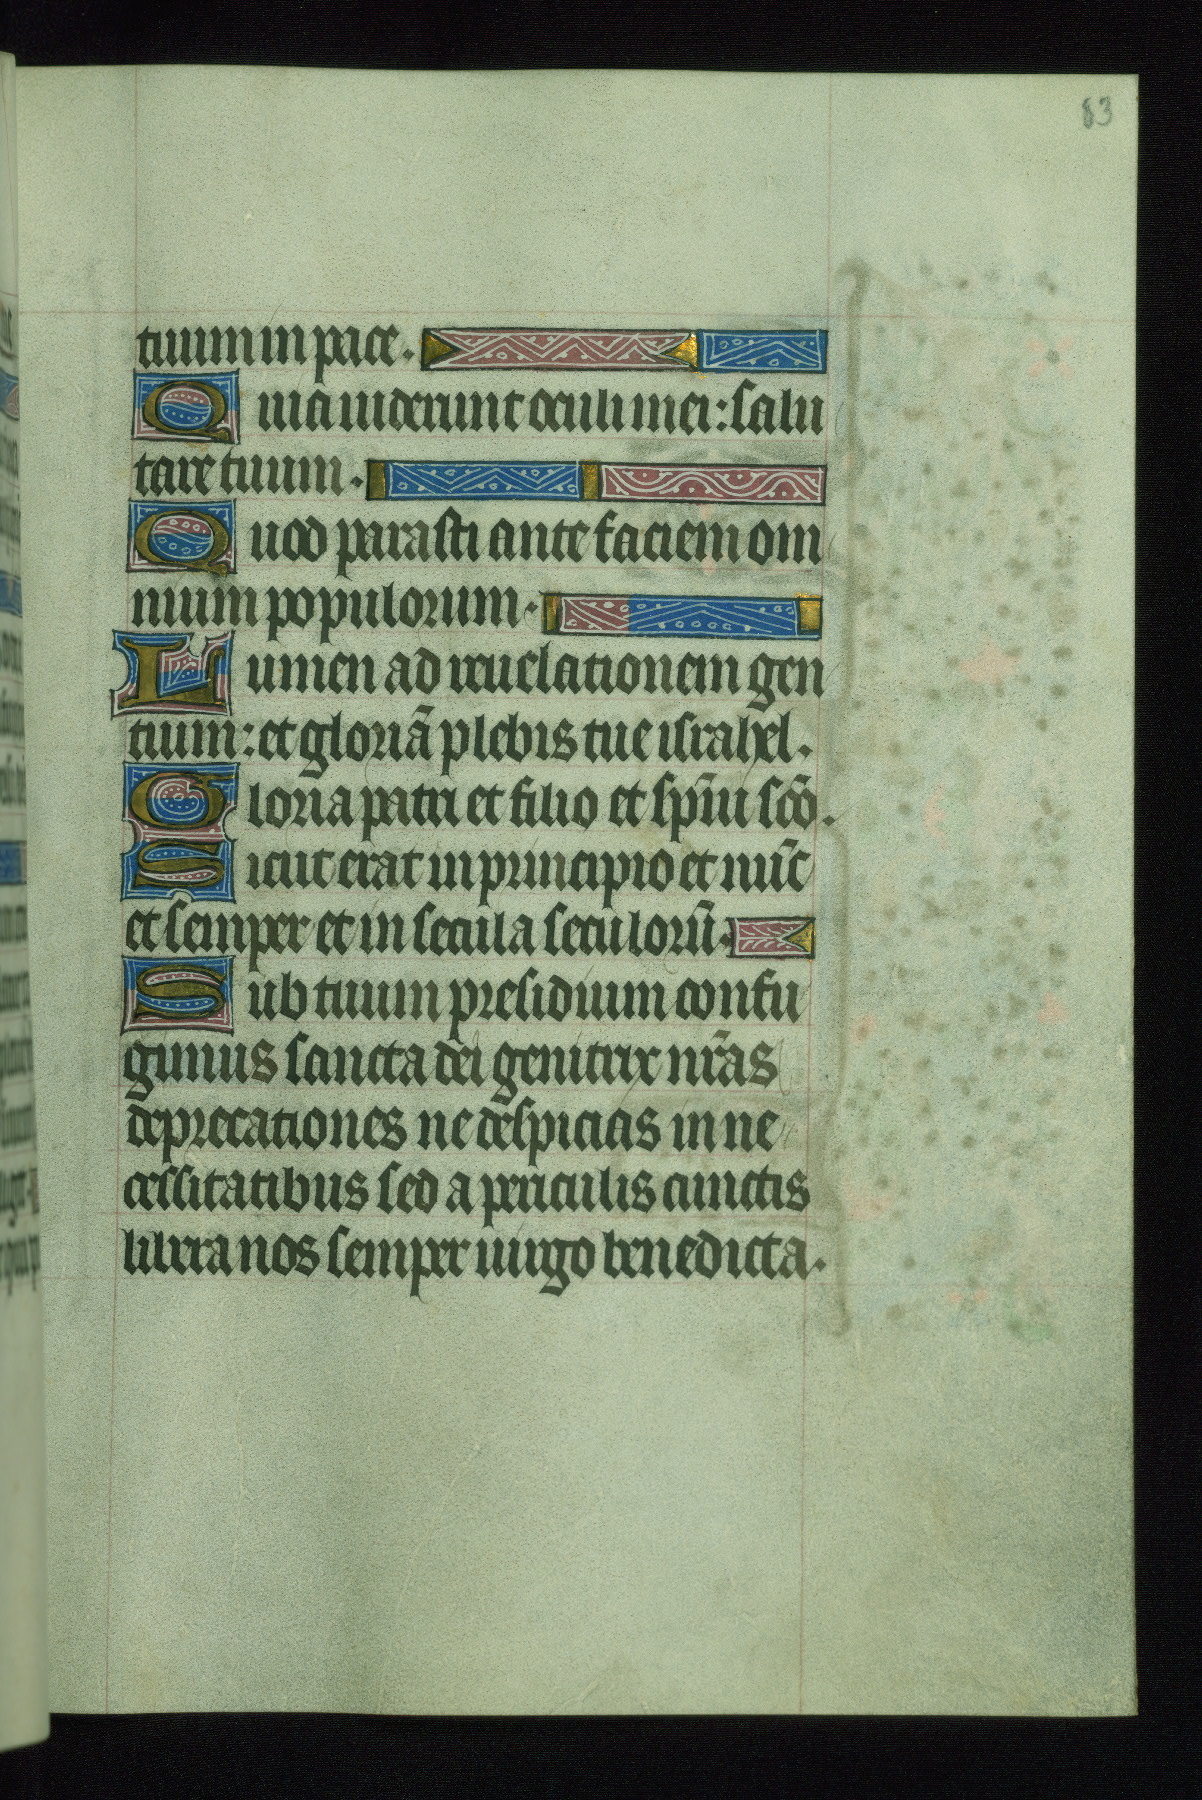 83
tuum in pace.
Quia uiderunt oculi mei: salu
tare tuum.
Quod parasti ante faciem om
nium populorum.
Lumen ad reuelationem gen
tium: et gloriā plebis tue israhel.
Gloria patri et filio et sp̄ui sc̄o.
Sicut erat in principio et nūc
et semper et in secula seculorū.
Sub tuum presidium confu
gimus sancta dei genitrix nr̄as
deprecationes ne despicias in ne
cessitatibus sed a periculis cunctis
libera nos semper uirgo benedicta.